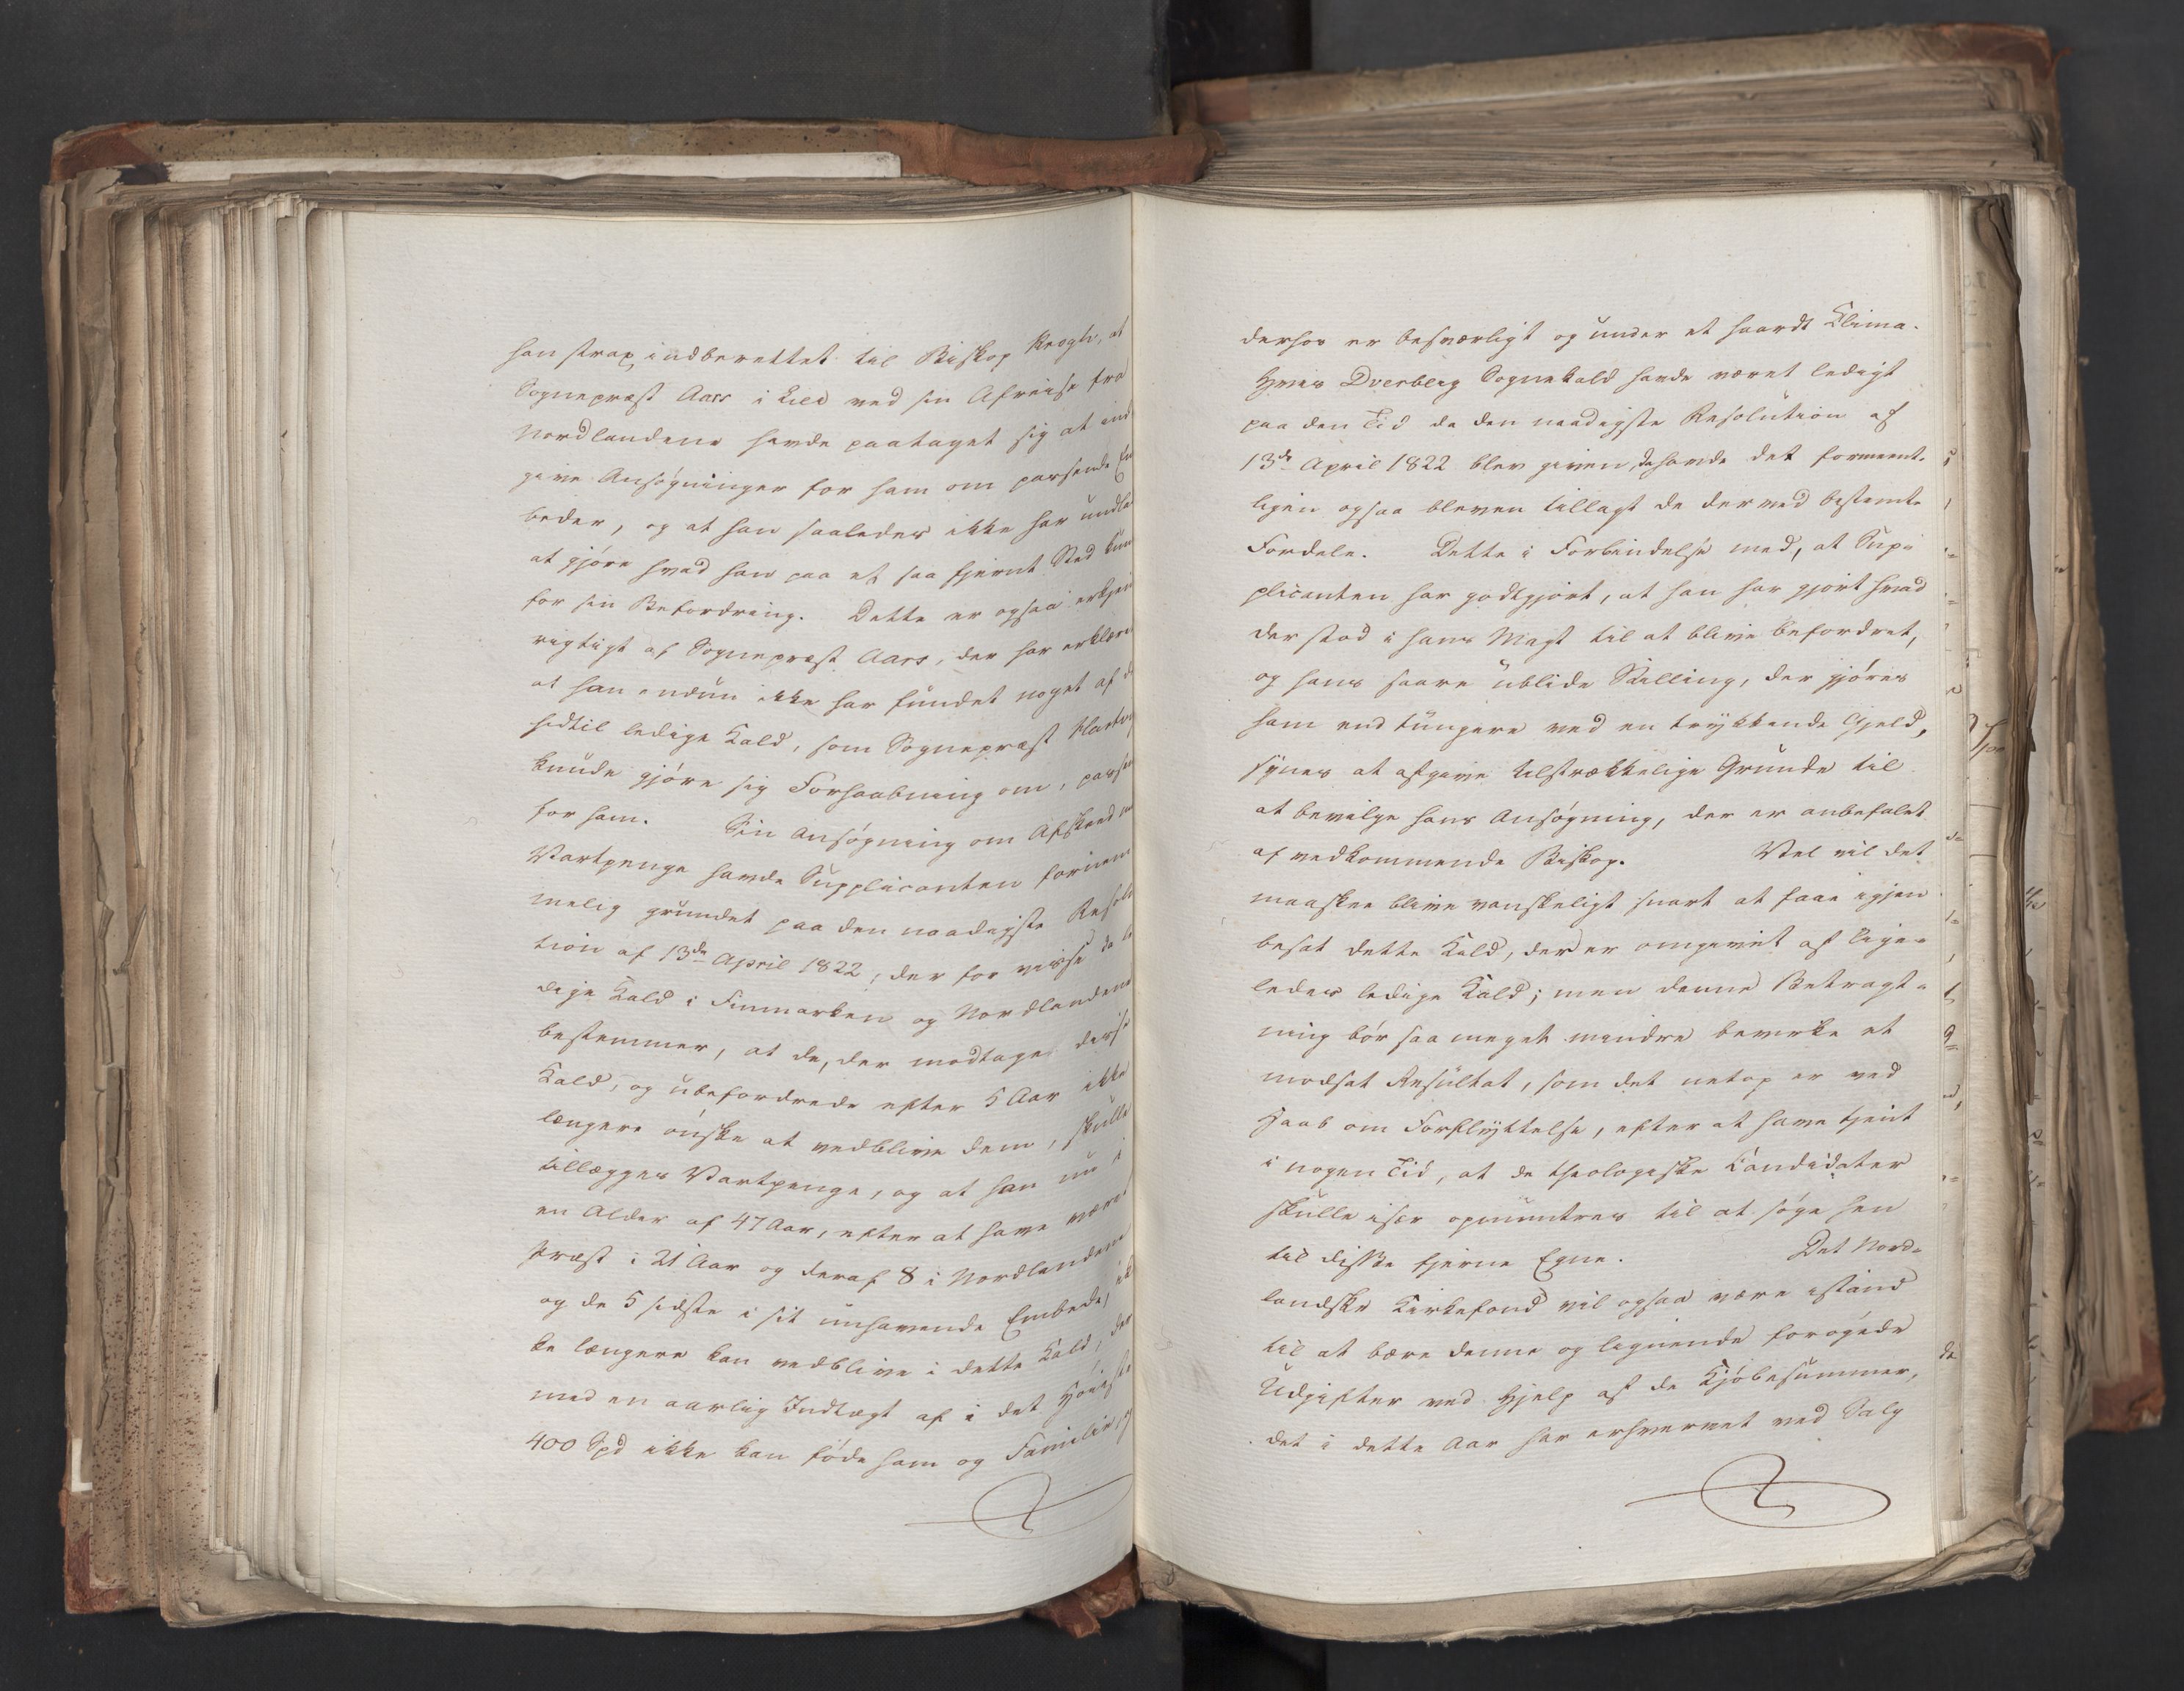 han strax indberettet til Biskop Krogh, at
Sognepræst Aars i Lier ved sin Afreise fra
Nordlandene havde paataget sig at ind
give Ansøgninger for ham om passende Em
beder, og at han saaledes ikke har undla
at gjøre hvad han paa et saa fjernt Sted kun
for sin Befordring. Dette er ogsaa erkjen
rigtigt af Sognepræst Aars, der har erklære
at han endnu ikke har fundet noget af de
hidtil ledige Kald, som Sognepræst Hartvig
kunde gjøre sig Forhaabning om, passen
for ham. Sin Ansøgning om Afskeed med
Vartpenge havde Supplicanten fornem
melig grundet paa den naadigste Resolu
tion af 13de April 1822, der for visse da le
dige Kald i Finmarken og Nordlandene
bestemmer, at de, der modtage disse
Kald, og ubefordrede efter 5 Aar ikke
længere ønske at vedblive dem, skulle
tillægges Vartpenge, og at han nu i
en Alder af 47 Aar, efter at have været
Præst i 21 Aar og deraf 8 i Nordlandene
og de 5 sidste i sit nuhavende Embede, ik
ke længere kan vedblive i dette Kald, der
med en aarlig Indtægt af i det Høieste
400 Spd ikke kan føde ham og Familie, og
derhos er besværligt og under et haardt Clima.
Hvis Dverberg Sognekald havde været ledigt
paa den Tid da den naadigste Resolution af
13de April 1822 blev given, da havde det formeent-
ligen ogsaa bleven tillagt de derved bestemte
Fordele. Dette i Forbindelse med, at Sup-
plicanten har godtgjort, at han har gjort hvad
der stod i hans Magt til at blive befordret,
og hans saare ublide Stilling, der gjøres
ham end tungere ved en trykkende Gjeld,
synes at afgive tilstrækkelige Grunde til
at bevilge hans Ansøgning, der er anbefalet
af vedkommende Biskop. Vel vil det
maaskee blive vanskeligt snart at faae igjen
besat dette Kald, der er omgivet af lige-
ledes ledige Kald; men denne Betragt-
ning bør saa meget mindre bevirke et
modsat Resultat, som det netop er ved
Haab om Forflyttelse, efter at have tjent
i nogen Tid, at de theologiske Candidater
skulle især opmuntres til at søge hen
til disse fjerne Egne. Det Nord-
landske Kirkefond vil ogsaa være istand
til at bære denne og lignende forøgede
Udgifter ved Hjelp af de Kjøbesummer,
det i dette Aar har erhvervet ved Salg